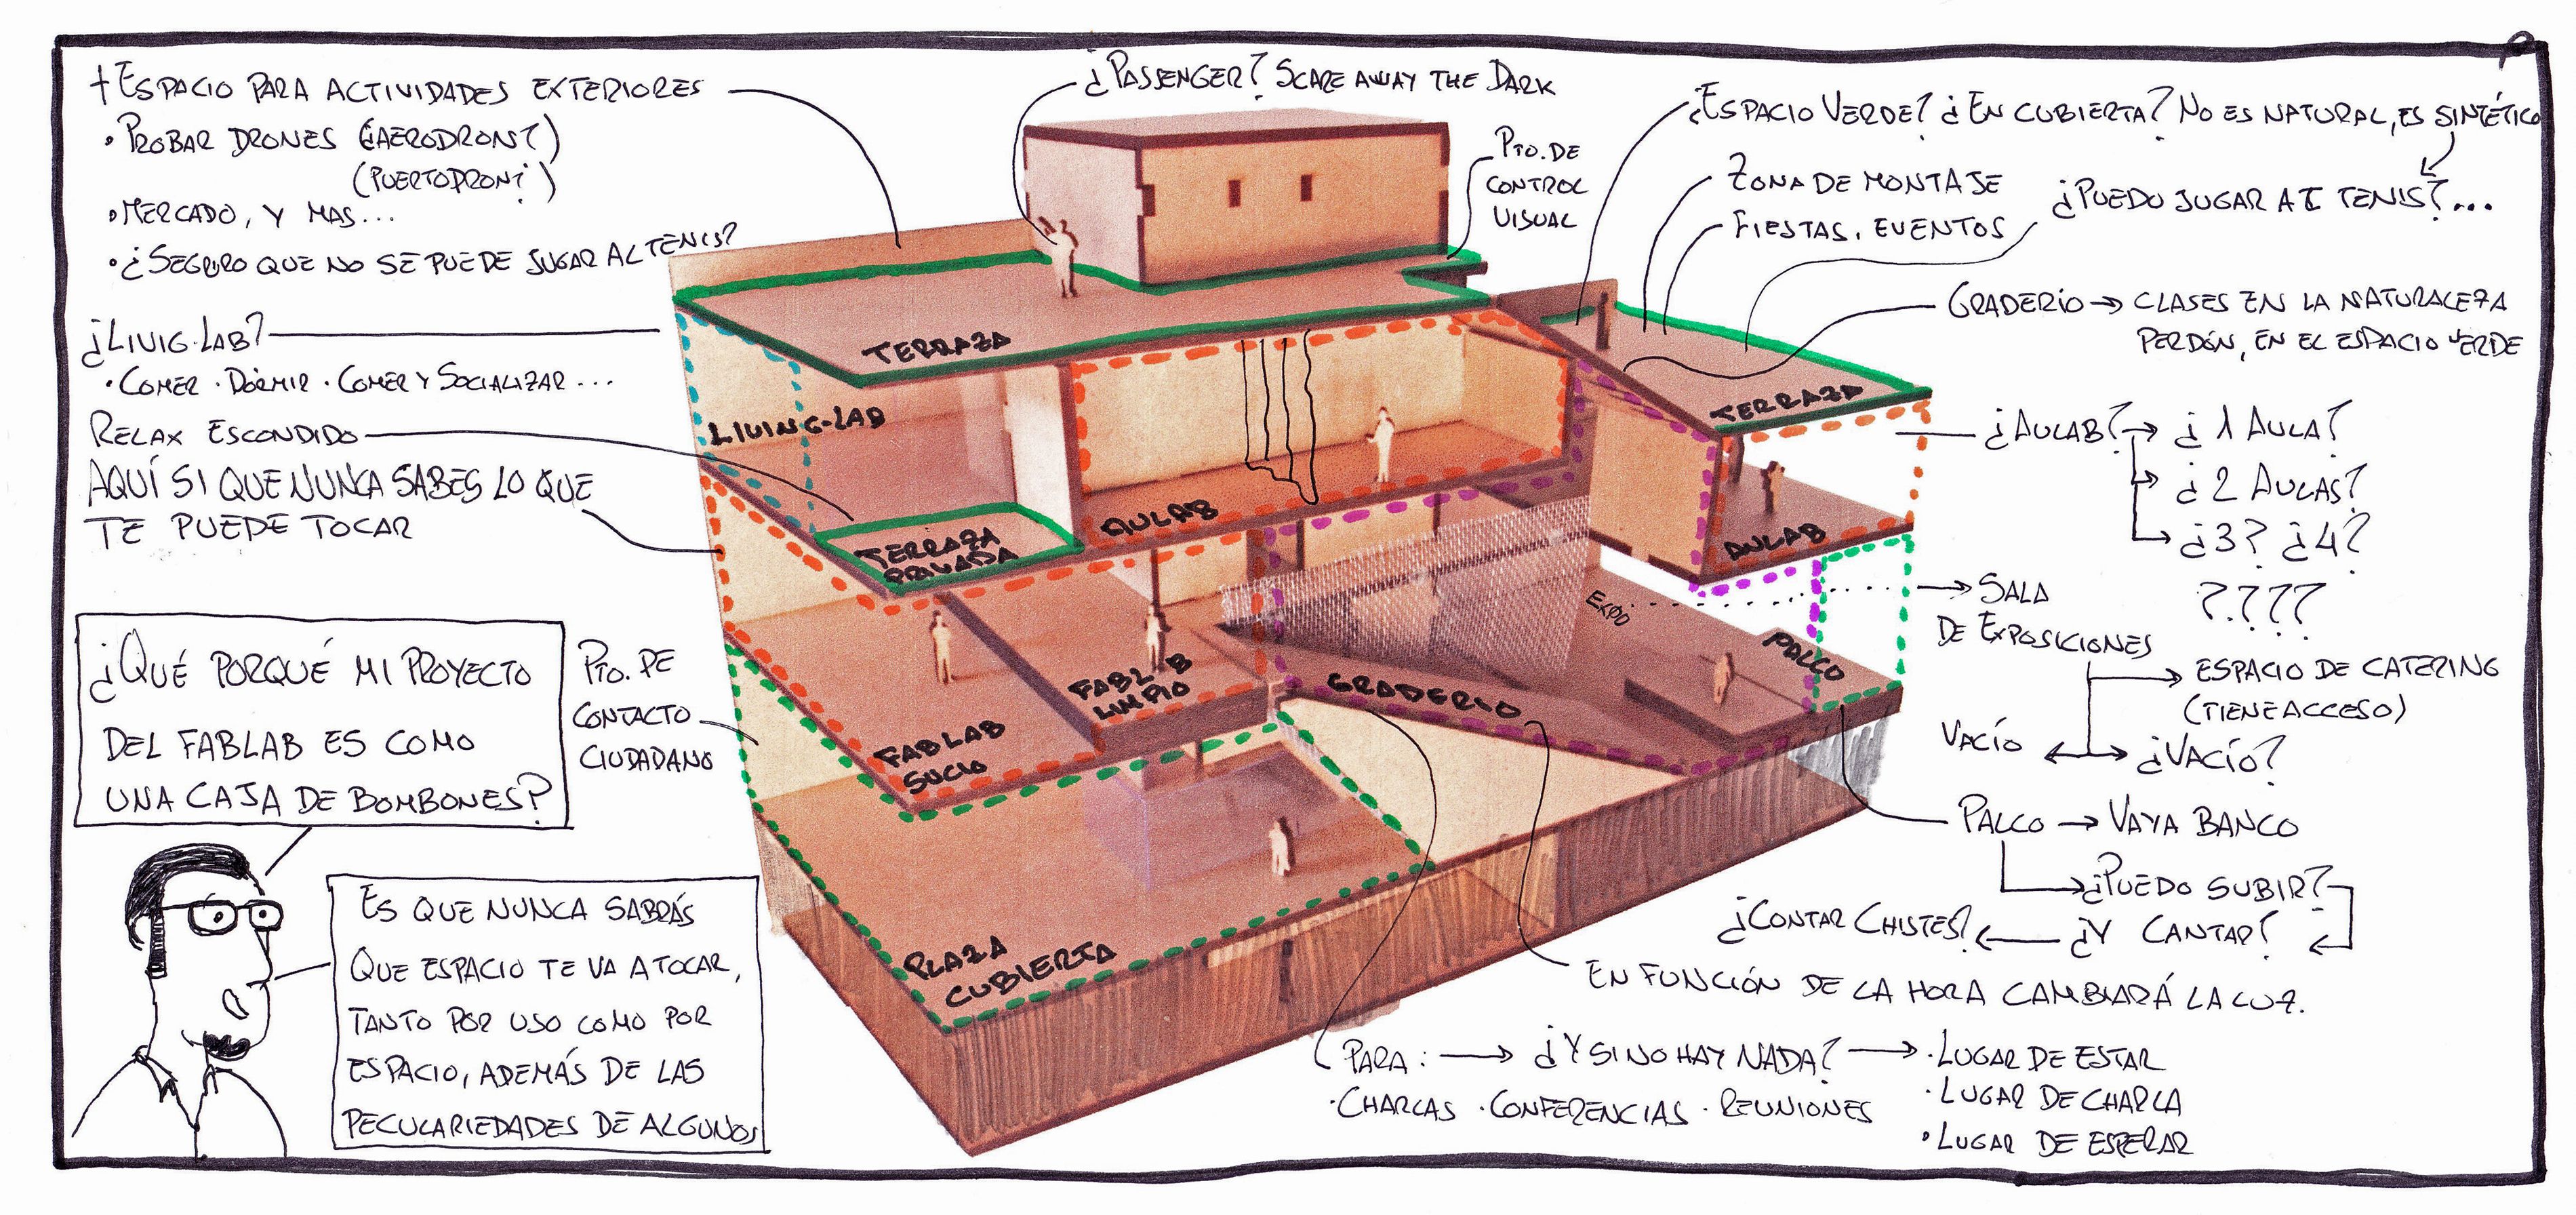 + ESPACIO PARA ACTIVIDADES EXTERIORES
• PROBAR DRONES (¿AERODRON?)
(PUERTODRON?)
• MERCADO, Y MAS...
• ¿SEGURO QUE NO SE PUEDE JUGAR AL TENIS?
¿LIVIG-LAB?
• COMER • DORMIR • COMER Y SOCIALIZAR...
RELAX ESCONDIDO
AQUÍ SI QUE NUNCA SABES LO QUE
TE PUEDE TOCAR
¿QUÉ PORQUÉ MI PROYECTO
DEL FABLAB ES COMO
UNA CAJA DE BOMBONES?
PTO. DE
CONTACTO
CIUDADANO
ES QUE NUNCA SABRÁS
QUE ESPACIO TE VA A TOCAR,
TANTO POR USO COMO POR
ESPACIO, ADEMÁS DE LAS
PECULARIEDADES DE ALGUNOS
¿PASSENGER? SCARE AWAY THE DARK
PTO. DE
CONTROL
VISUAL
TERRAZA
LIVING-LAB
TERRAZA
PRIVADA
AULAB
FABLAB
LIMPIO
FABLAB
SUCIO
PLAZA
CUBIERTA
GRADERIO
EXPO
PALCO
TERRAZA
AULAB
¿ESPACIO VERDE? ¿EN CUBIERTA? NO ES NATURAL, ES SINTÉTICO
ZONA DE MONTAJE
¿PUEDO JUGAR AL TENIS?...
FIESTAS, EVENTOS
GRADERÍO → CLASES EN LA NATURALEZA
PERDÓN, EN EL ESPACIO VERDE
¿AULAB? → ¿1 AULA?
→ ¿2 AULAS?
→ ¿3? ¿4?
????
SALA
DE EXPOSICIONES
ESPACIO DE CATERING
(TIENE ACCESO)
VACÍO ← → ¿VACÍO?
PALCO → VAYA BANCO
¿PUEDO SUBIR?
¿CONTAR CHISTES? ← ¿Y CANTAR?
EN FUNCIÓN DE LA HORA CAMBIARÁ LA LUZ.
PARA: → ¿Y SI NO HAY NADA? → • LUGAR DE ESTAR
• CHARLAS • CONFERENCIAS • REUNIONES
• LUGAR DE CHARLA
• LUGAR DE ESPERAR